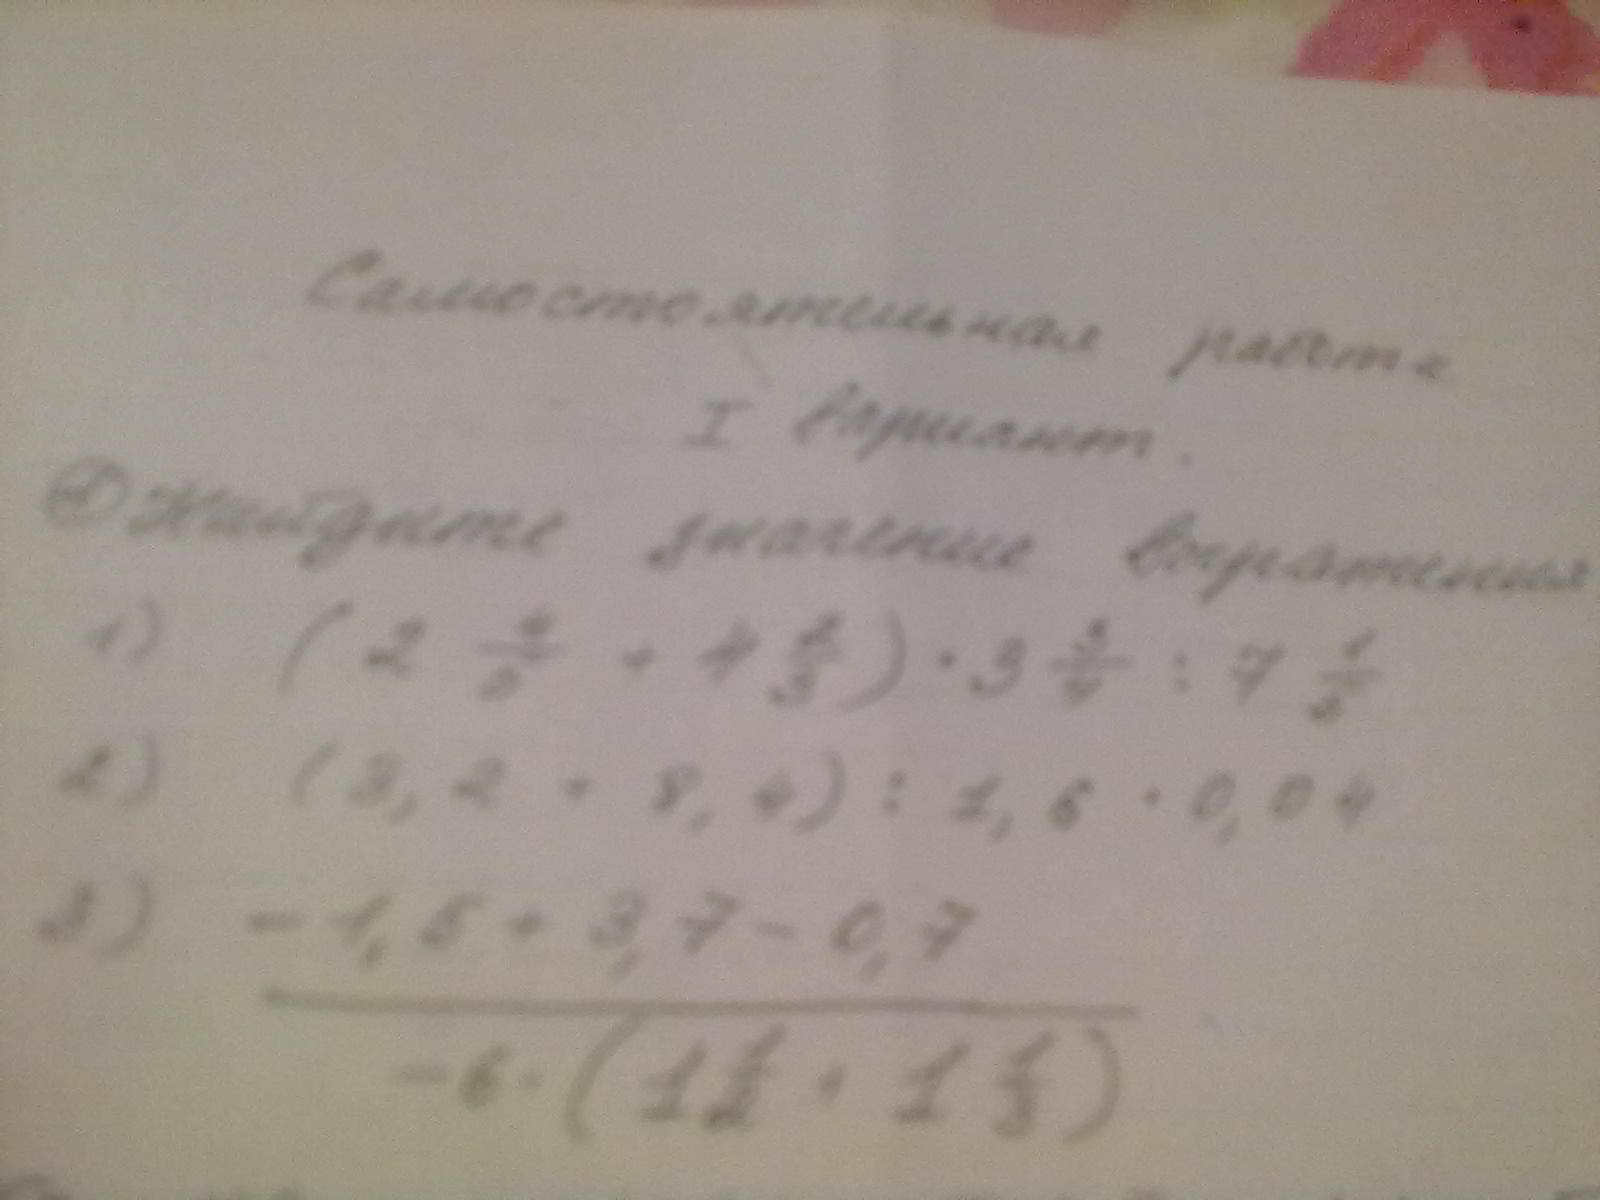 Самостоятельная работа
I вариант.
① Найдите значение выражения
1) (2 4/5 + 4 2/3) · 3 3/4 : 7 1/2
2) (3,2 + 8,4) : 1,6 · 0,04
3) -1,5 + 3,7 - 0,7
-6 · (1 1/2 + 1 1/3)